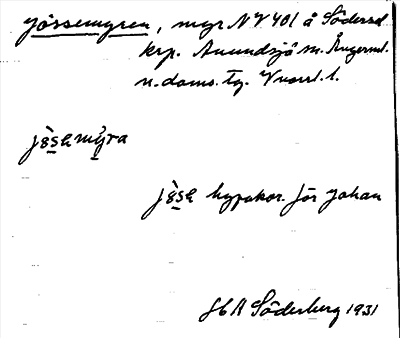 Jössemyren, myr NV 401 å Södersel
krp. Anundsjö sn. Ångerml.
n. doms. tg.
jösemýra
jöse hypokor. för Johan
H A Söderberg 1931